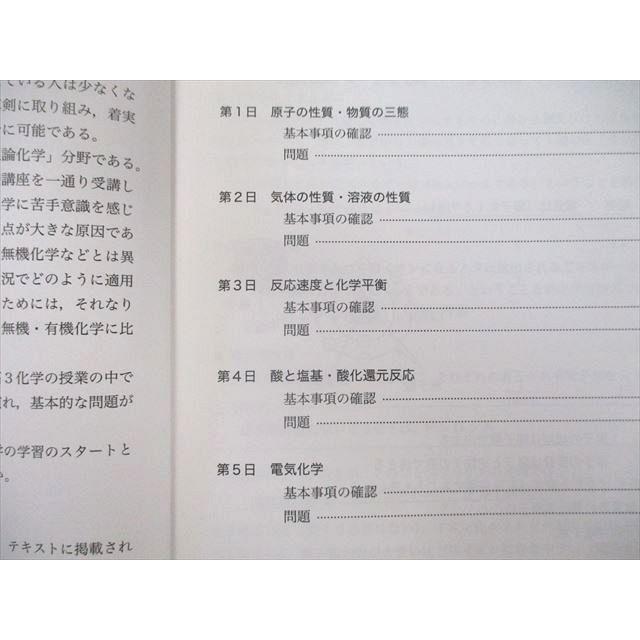 ている人は少なくな
剣に取り組み，着実
に可能である。
論化学」分野である。
講座を一通り受講し
学に苦手意識を感じ
点が大きな原因であ
無機化学などとは異
況でどのように適用
ためには，それなり
無機・有機化学に比
３化学の授業の中で
れ，基本的な問題が
学の学習のスタートと
。
テキストに掲載され
第１日　原子の性質・物質の三態
基本事項の確認
問題
第２日　気体の性質・溶液の性質
基本事項の確認
問題
第３日　反応速度と化学平衡
基本事項の確認
問題
第４日　酸と塩基・酸化還元反応
基本事項の確認
問題
第５日　電気化学
基本事項の確認
問題